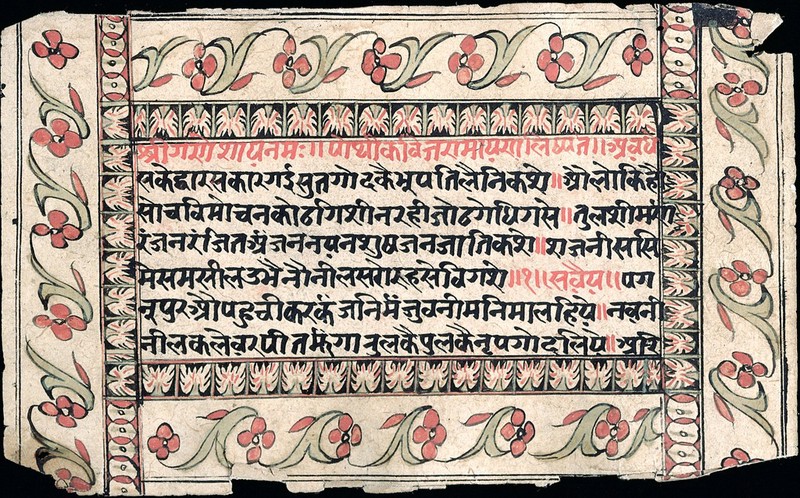 श्रीगणेशायनमः॥ पोथीकवितरामायणलिष्यते॥ अवधे
सकेद्वारसकारगईसुतगोदकैभूपतिलैनिकशे॥ औलोकिहौं
सोचविमोचनकोठगिशीनरहीजोठगेधिगसे॥ तुलशीमनं
रंजनरंजितअंजननयनशुषंजनजातिकशे॥ शजनीससि
मेसमसीलउभैनौनीलसरोरुहसेविगशे॥१॥सवैय॥पग
नूपुरऔपहुचीकरकंजनिमंजुवनीमनिमालहिये॥नवनी
नीलकलेवरपीतमंगाझुलकैपुलकैनृपगोदलिये॥अरि